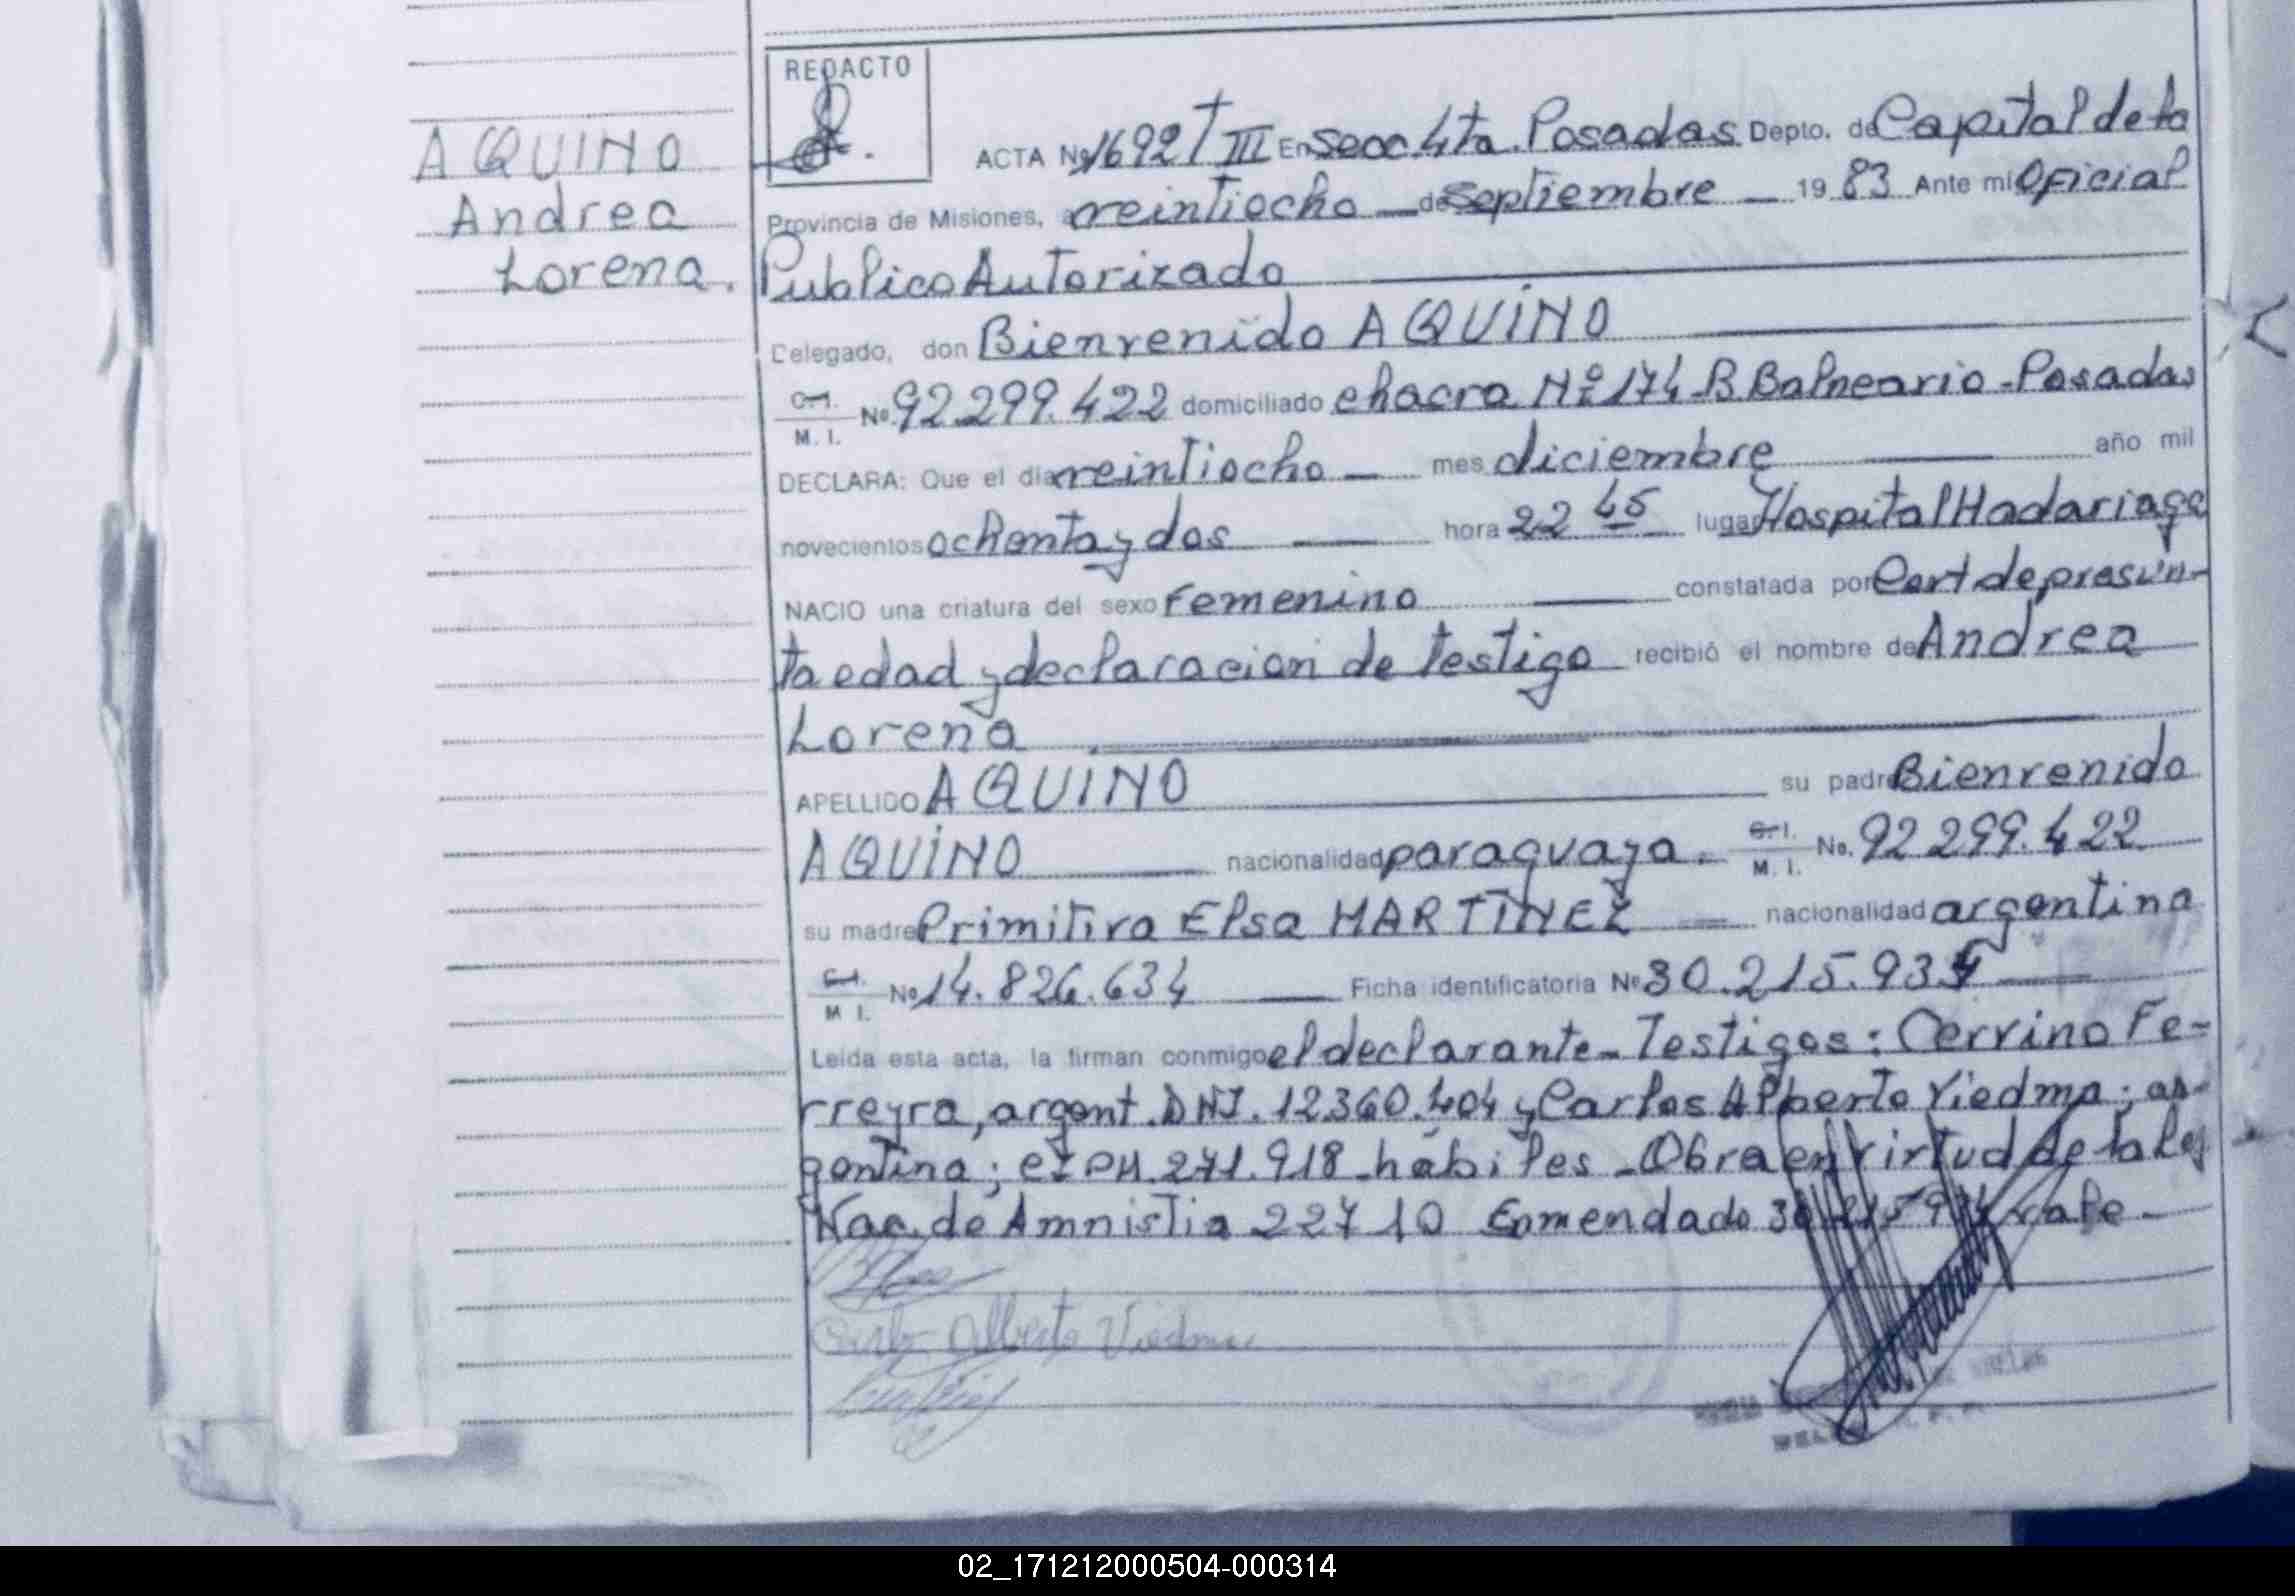 AQUINO
Andrea
Lorena.
REDACTO
ACTA Nº 1692 T III En secc. 4ta. Posadas Depto. de Capital de la
Provincia de Misiones, a veintiocho de septiembre 19 83 Ante mi Oficial
Publico Autorizado
Delegado, don Bienvenido AQUINO
C.I. M. I. Nº 92.299.422 domiciliado chacra Nº 174 B Balneario - Posadas
DECLARA: Que el dia veintiocho mes diciembre año mil
novecientos ochenta y dos hora 22 45 lugar Hospital Madariaga
NACIO una criatura del sexo Femenino constatada por Cert de presun-
ta edad y declaracion de testigo recibió el nombre de Andrea
Lorena
APELLIDO AQUINO su padre Bienvenido
AQUINO nacionalidad paraguaya. C.I. M. I. No. 92 299.422
su madre Primitiva Elsa MARTINEZ nacionalidad argentina
C.I. M I. Nº 14.826.634 Ficha identificatoria Nº 30.215.934
Leída esta acta, la firman conmigo el declarante - Testigos: Cervino Fe-
rreyra, argent. DNI. 12360.404 y Carlos Alberto Viedma; ar-
gentina; 271.918 hábiles - Obra en virtud de la Ley
Nac. de Amnistia 22410 Enmendado 30 215 934 vale -
Carlos Alberto Viedma
02_171212000504-000314